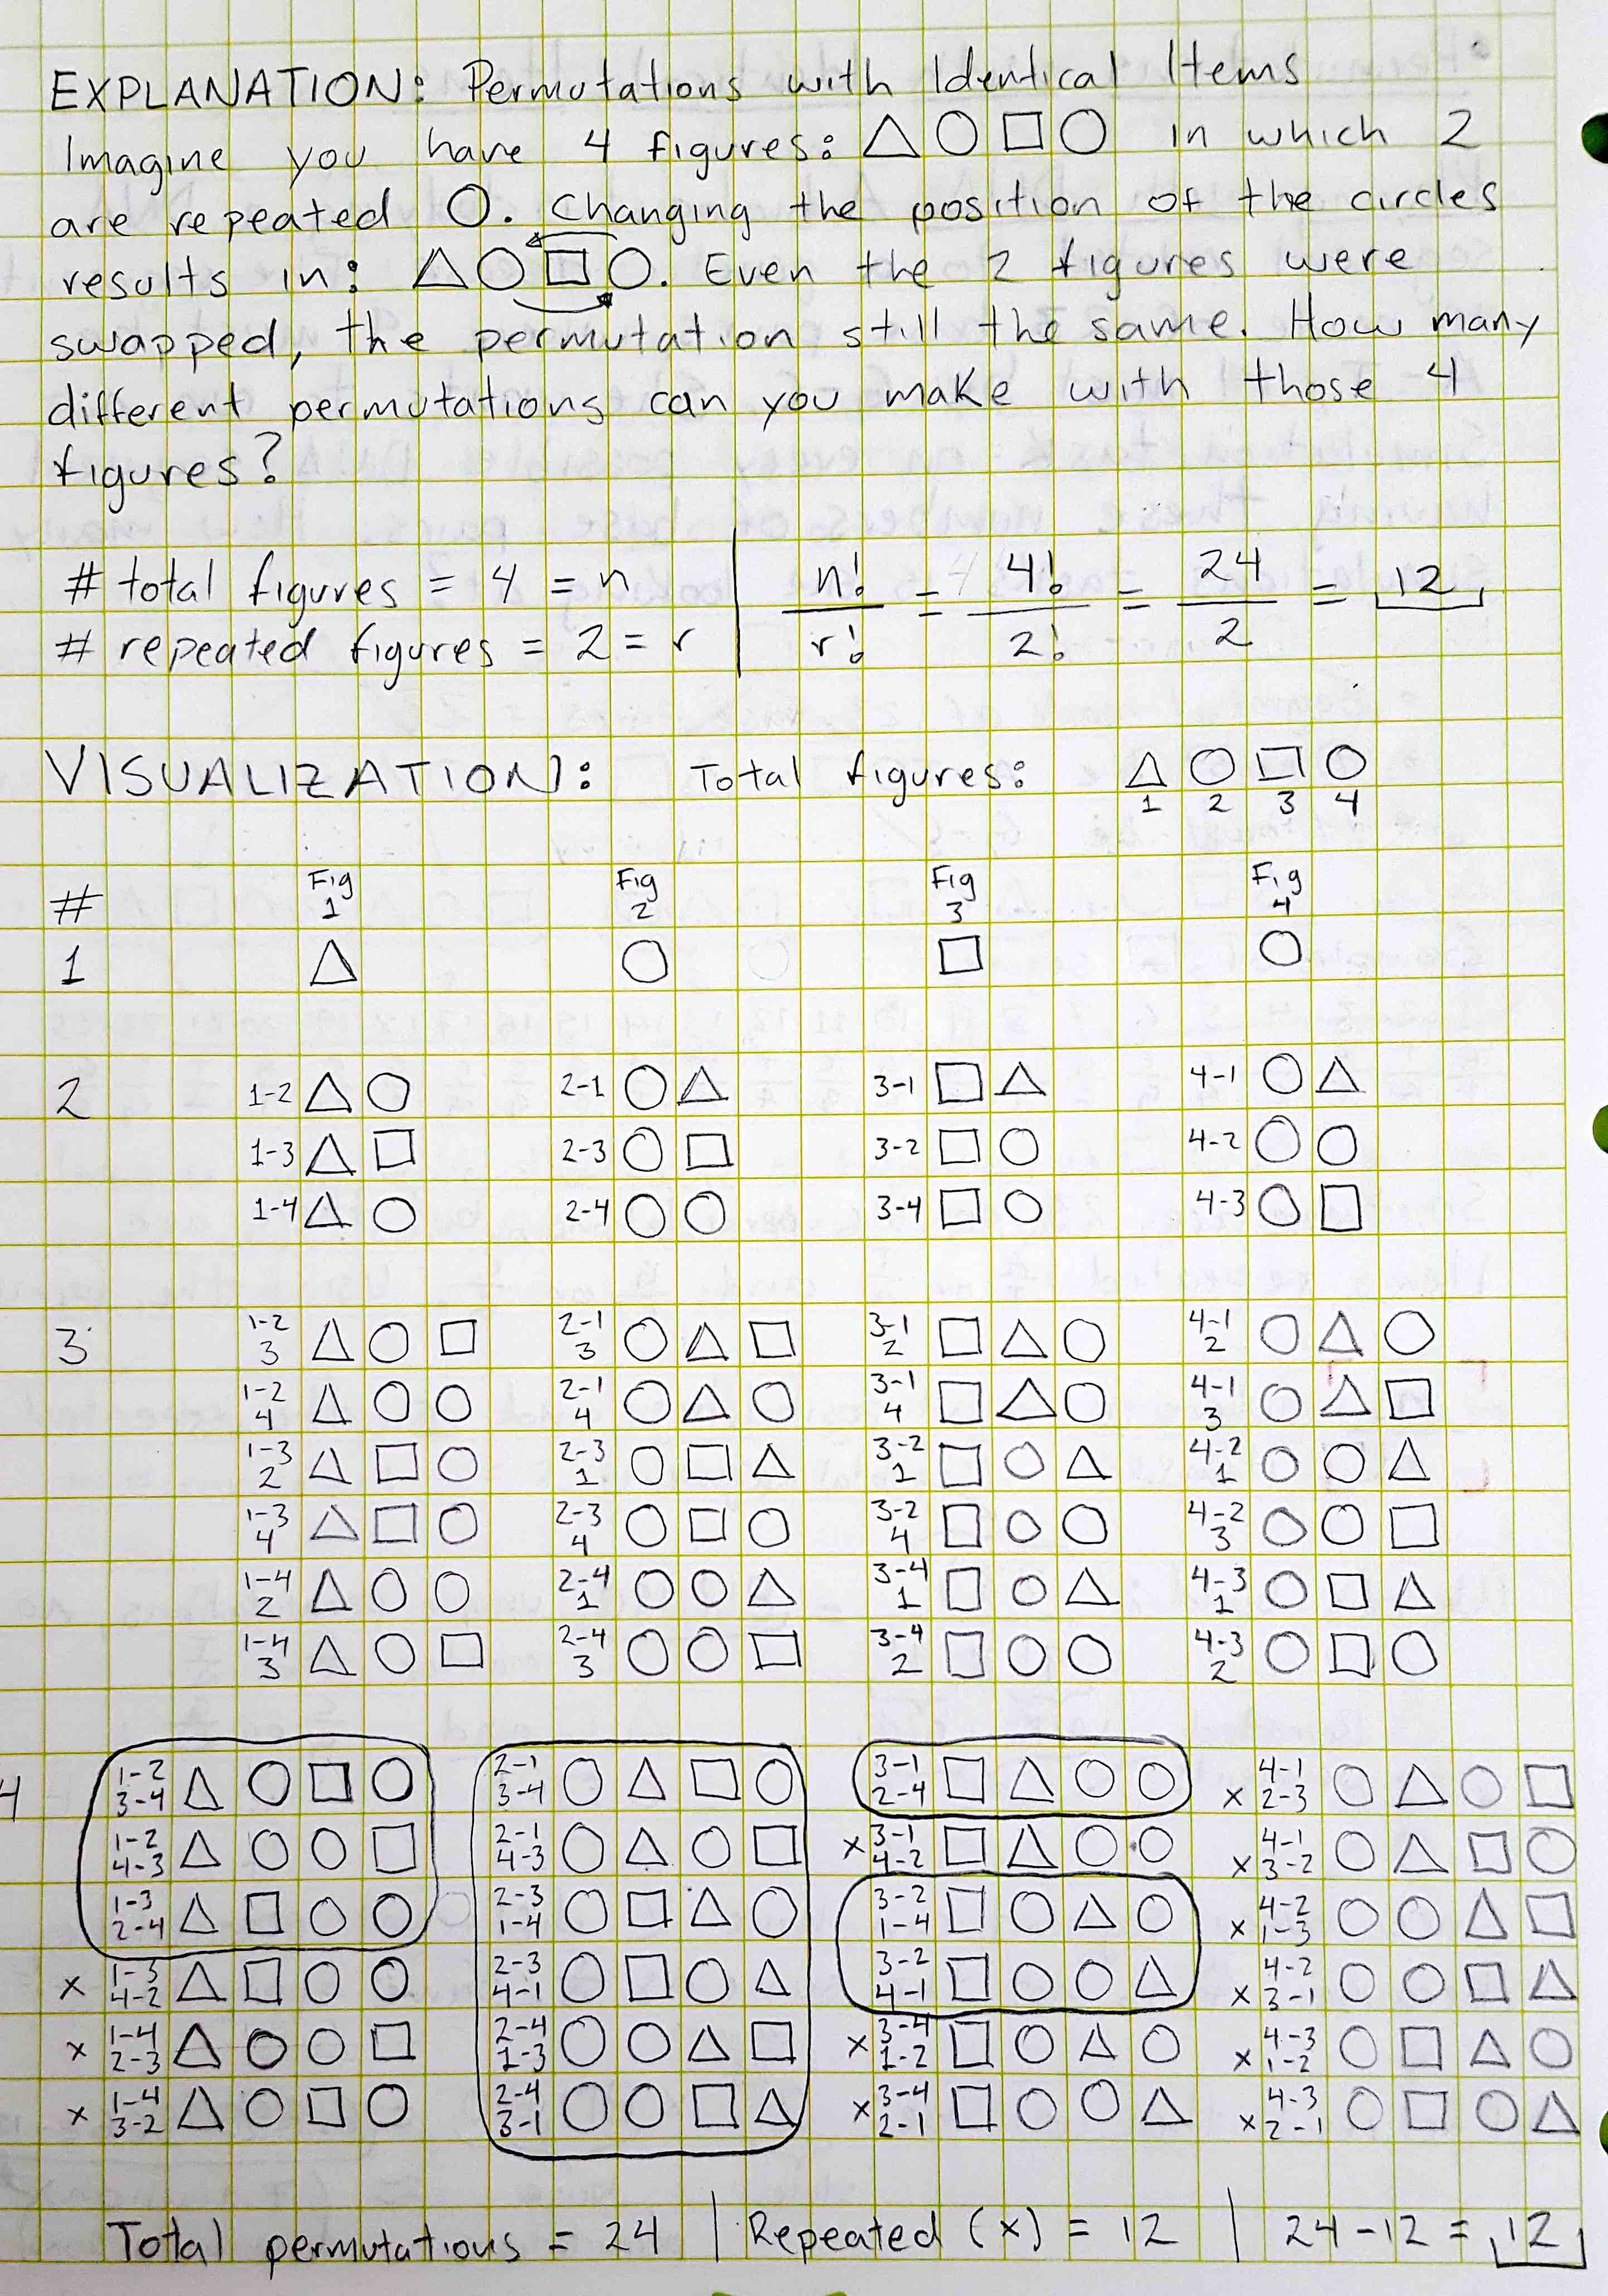 EXPLANATION: Permutations with Identical Items
Imagine you have 4 figures: △ ○ □ ○ in which 2
are repeated ○. Changing the position of the circles
results in: △ ○ □ ○. Even the 2 figures were
swapped, the permutation still the same. How many
different permutations can you make with those 4
figures?
# total figures = 4 = n | n!/r! = 4!/2! = 24/2 = 12
# repeated figures = 2 = r
VISUALIZATION: Total figures: △ ○ □ ○
1 2 3 4
# Fig 1 Fig 2 Fig 3 Fig 4
1 △ ○ □ ○
2 1-2 △ ○ 2-1 ○ △ 3-1 □ △ 4-1 ○ △
1-3 △ □ 2-3 ○ □ 3-2 □ ○ 4-2 ○ ○
1-4 △ ○ 2-4 ○ ○ 3-4 □ ○ 4-3 ○ □
3 1-2 3 △ ○ □ 2-1 3 ○ △ □ 3-1 2 □ △ ○ 4-1 2 ○ △ ○
1-2 4 △ ○ ○ 2-1 4 ○ △ ○ 3-1 4 □ △ ○ 4-1 3 ○ △ □
1-3 2 △ □ ○ 2-3 1 ○ □ △ 3-2 1 □ ○ △ 4-2 1 ○ ○ △
1-3 4 △ □ ○ 2-3 4 ○ □ ○ 3-2 4 □ ○ ○ 4-2 3 ○ ○ □
1-4 2 △ ○ ○ 2-4 1 ○ ○ △ 3-4 1 □ ○ △ 4-3 1 ○ □ △
1-4 3 △ ○ □ 2-4 3 ○ ○ □ 3-4 2 □ ○ ○ 4-3 2 ○ □ ○
4 1-2 3-4 △ ○ □ ○ 2-1 3-4 ○ △ □ ○ 3-1 2-4 □ △ ○ ○ x 4-1 2-3 ○ △ ○ □
1-2 4-3 △ ○ ○ □ 2-1 4-3 ○ △ ○ □ x 3-1 4-2 □ △ ○ ○ x 4-1 3-2 ○ △ □ ○
1-3 2-4 △ □ ○ ○ 2-3 1-4 ○ □ △ ○ 3-2 1-4 □ ○ △ ○ x 4-2 1-3 ○ ○ △ □
x 1-3 4-2 △ □ ○ ○ 2-3 4-1 ○ □ ○ △ 3-2 4-1 □ ○ ○ △ x 4-2 3-1 ○ ○ □ △
x 1-4 2-3 △ ○ ○ □ 2-4 1-3 ○ ○ △ □ x 3-4 1-2 □ ○ △ ○ x 4-3 1-2 ○ □ △ ○
x 1-4 3-2 △ ○ □ ○ 2-4 3-1 ○ ○ □ △ x 3-4 2-1 □ ○ ○ △ x 4-3 2-1 ○ □ ○ △
Total permutations = 24 | Repeated (x) = 12 | 24-12 = 12